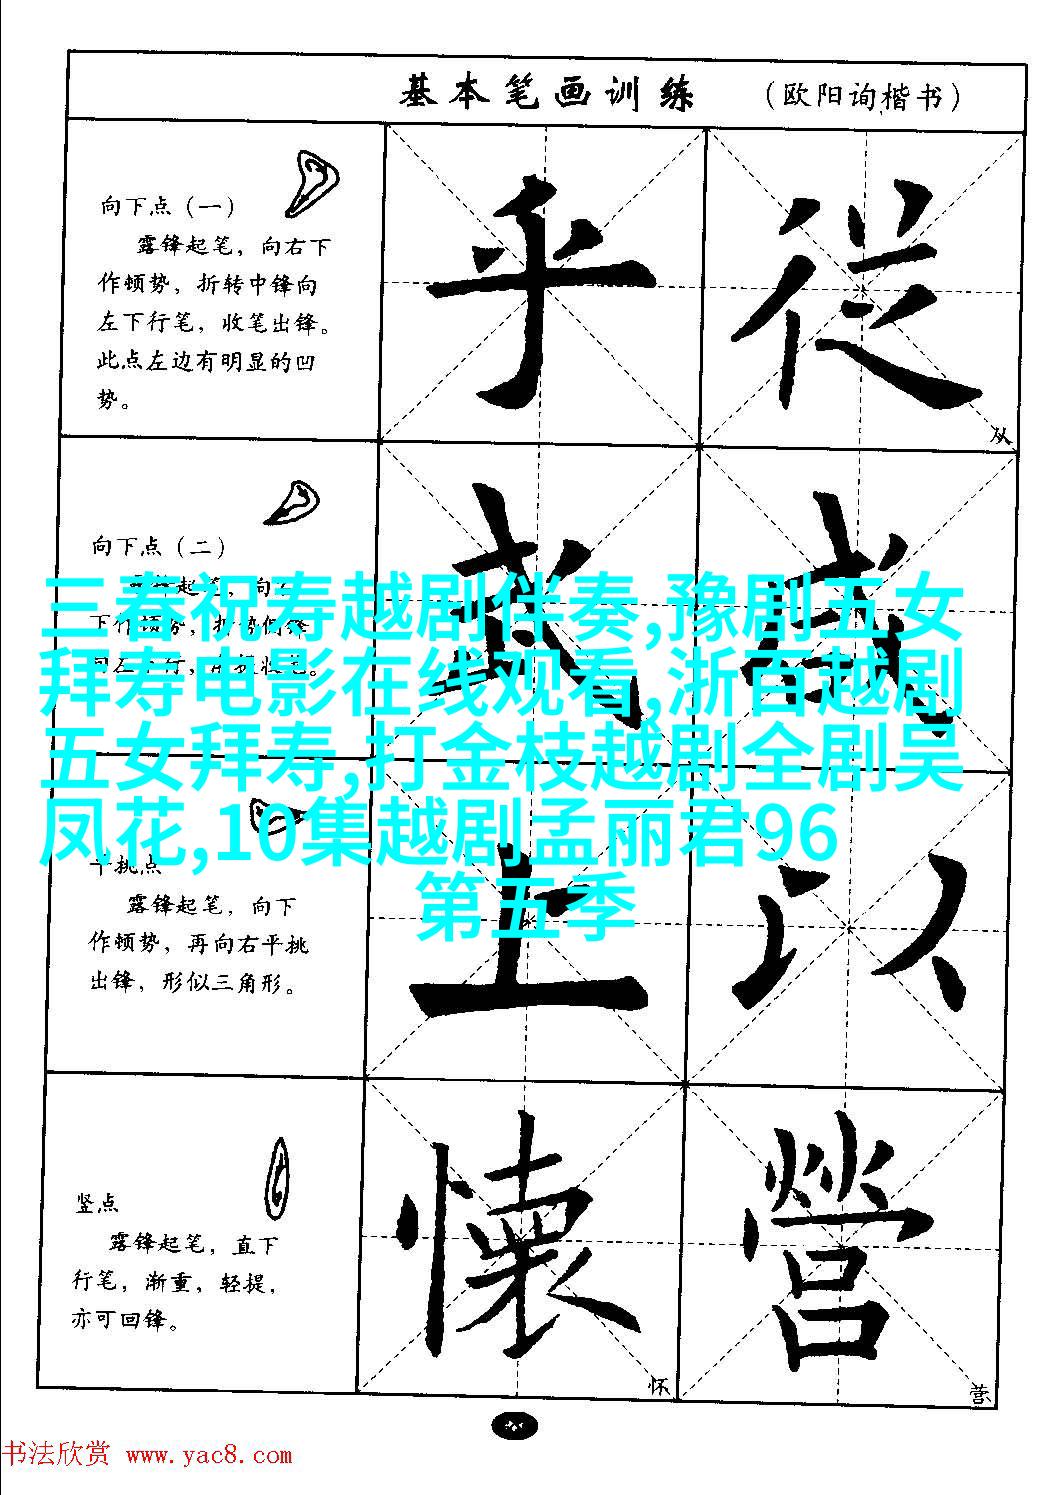 基本笔画训练 （欧阳询楷书）
向下点（一）
露锋起笔，向右下
作顿势，折转中锋向
左下行笔，收笔出锋。
此点左边有明显的凹
势。
乎 從
从
向下点（二）
露锋起笔，向
下作顿势，折势侧锋
向左下行，
或 咸
三春祝寿越剧伴奏,豫剧五女
拜寿电影在线观看,浙百越剧
五女拜寿,打金枝越剧全剧吴
凤花,10集越剧孟丽君96
第五季
平挑点
露锋起笔，向下
作顿势，再向右平挑
出锋，形似三角形。
上 以
竖点
露锋起笔，直下
行笔，渐重，轻提，
亦可回锋。
懷 營
怀 营
书法欣赏 www.yac8.com